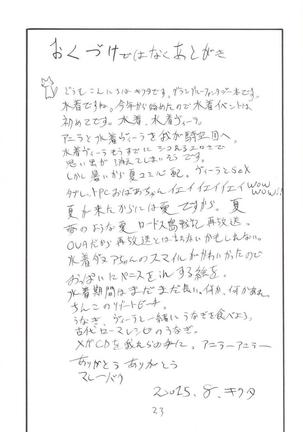 おくづけではなくあとがき
どうもこんにちはキクタです。グランブルーファンタジー本です。
水着ですね。今年から始めたので水着イベントは
初めてです。水着、水着ヴィーラ。
アニラと水着ヴィーラを我が騎空団へ
水着ヴィーラ
思い出が消えてしまいそうです。
しかし暑いから夏は心配。ヴィーラとSEX
おばあちゃんイエイイエイイエイWOW
WOW!
夏が来たからには夏ですから。夏
夏のような夏ロードス島戦記再放送。
OVAだから再放送とは言わないかもしれない。
水着ダヌアちゃんのスマイルがかわいかったので
おっぱいに する絵を。
水着期間はまだまだ長い。何か、何かあれ
さんこのリゾートビーチ。
うなぎ、ヴィーラと一緒にうなぎを食べよう。
古代ローマレシピのうなぎ。
CDを我えらの手に。アニラーアニラー
ありがとうありがとう
マレーバク
2015.8.キクタ
23